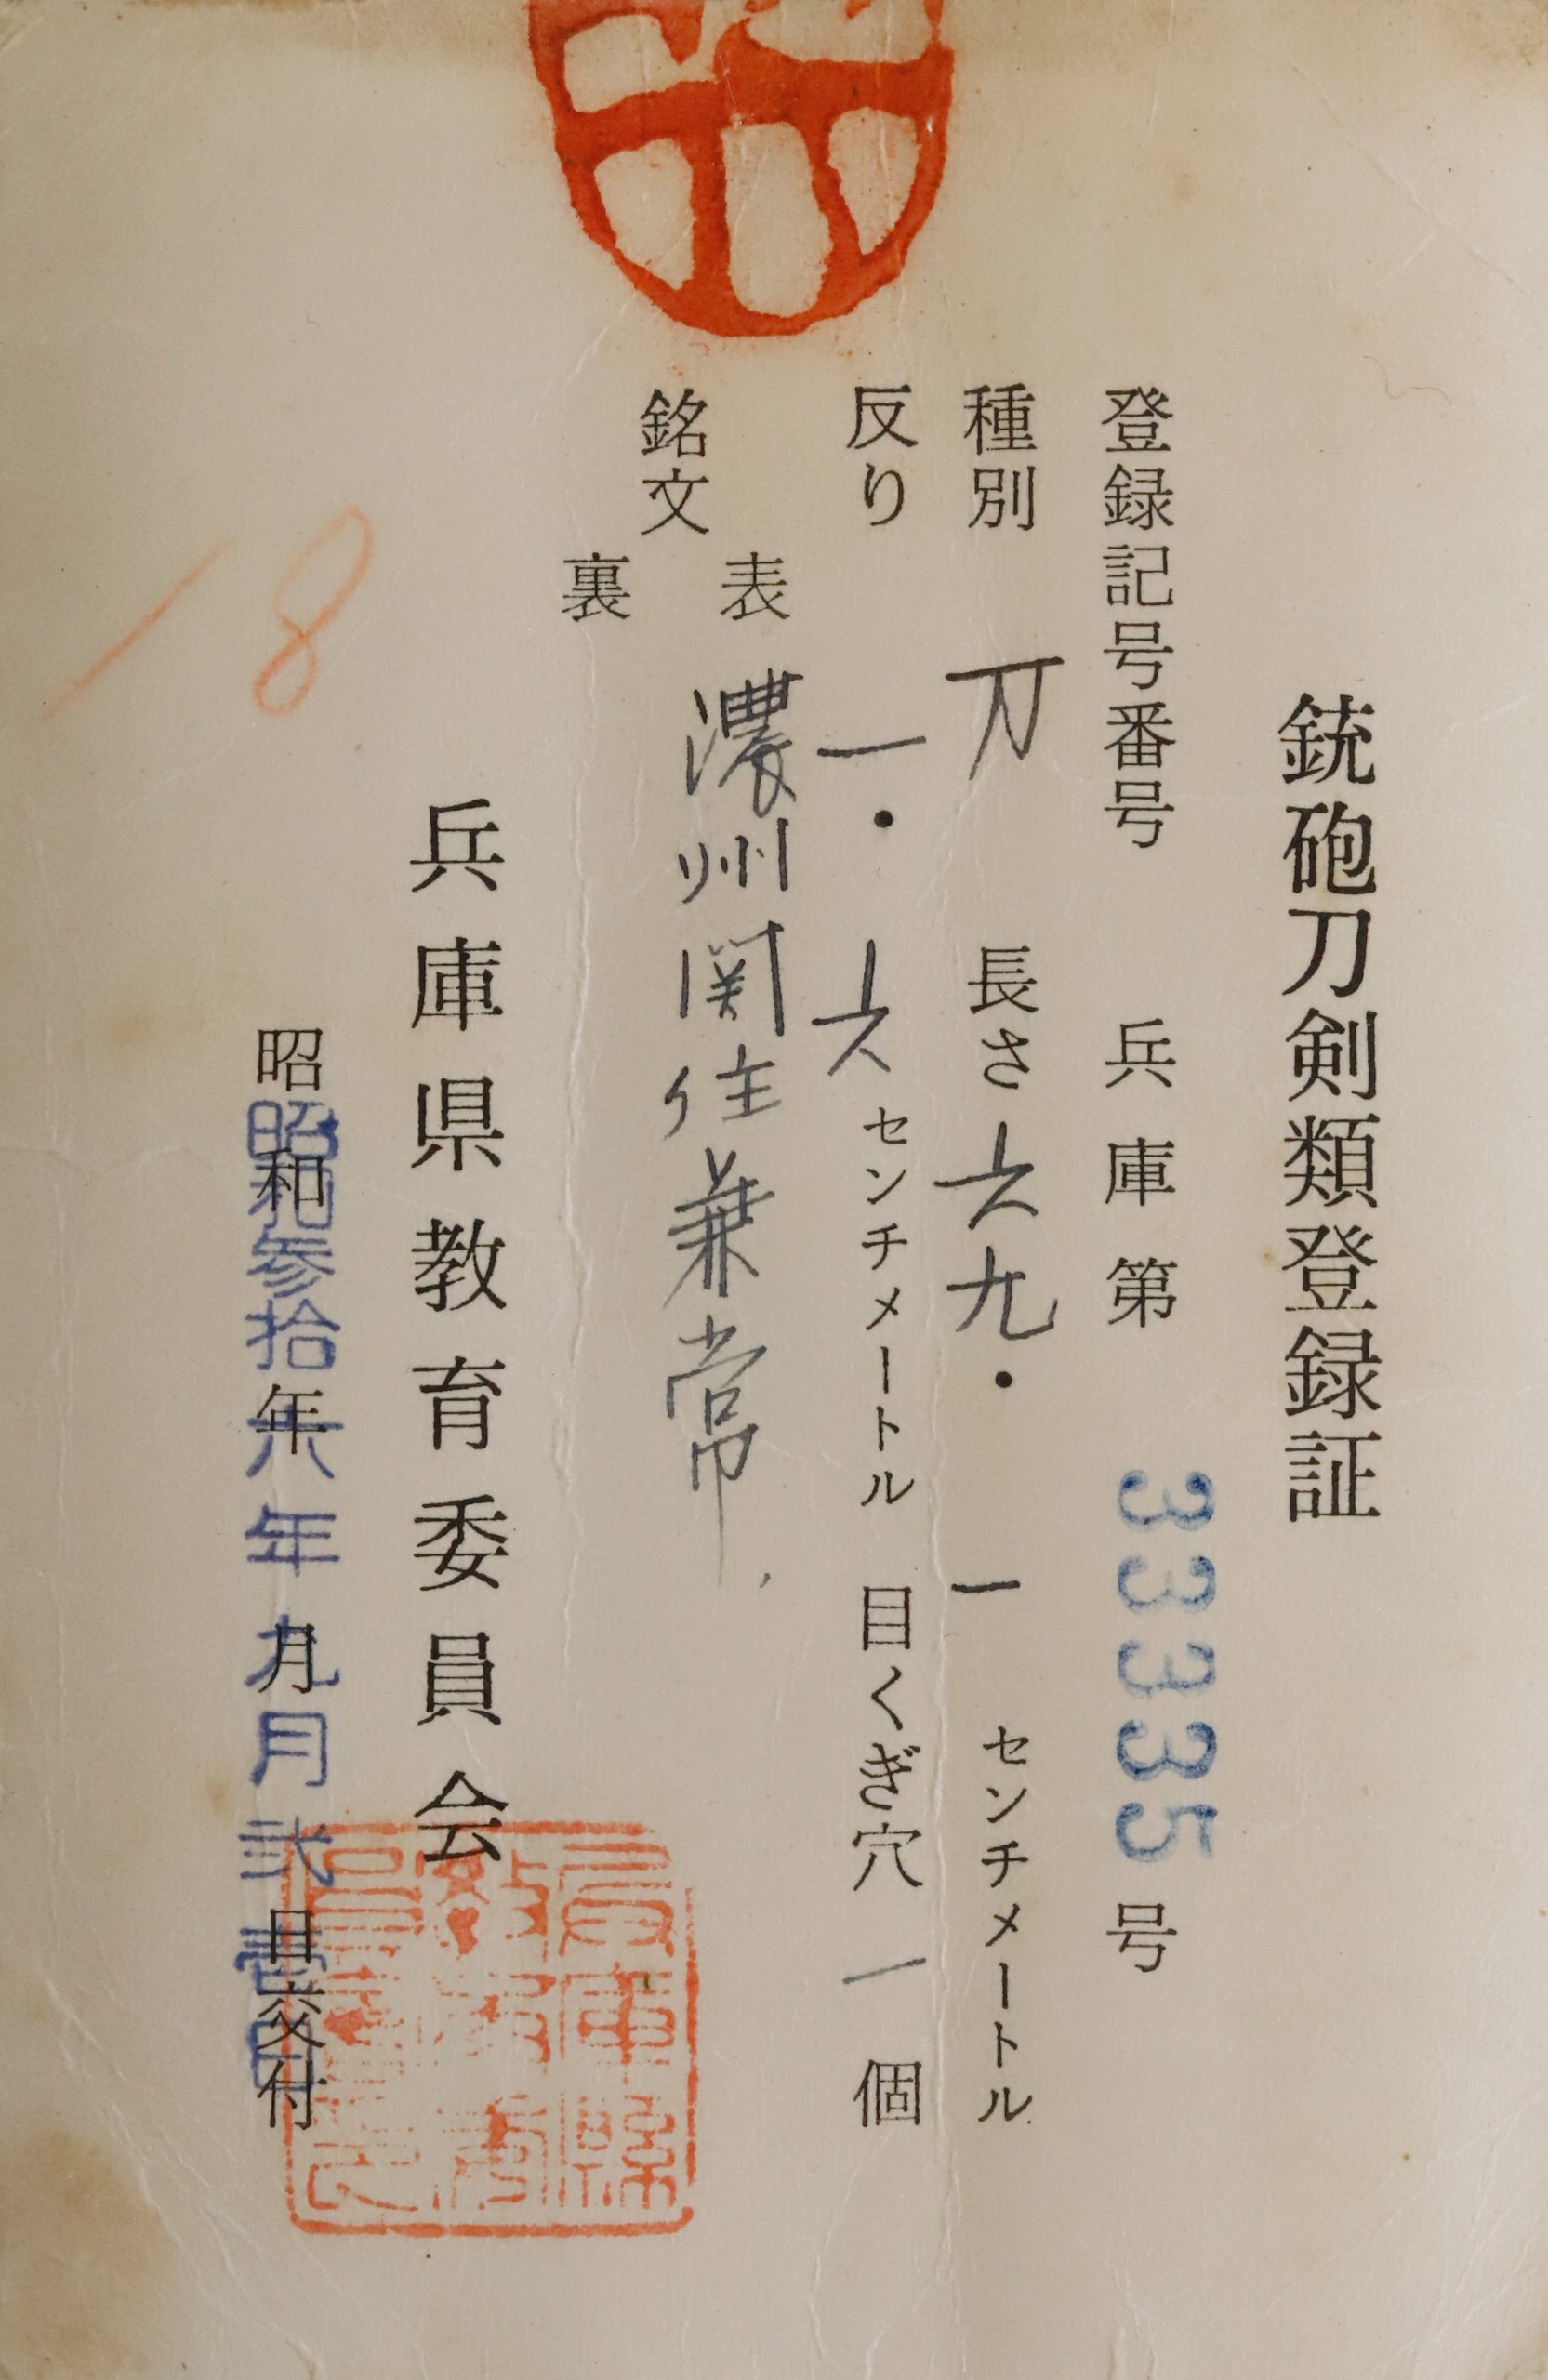 銃砲刀剣類登録証
登録記号番号 兵庫第 33335 号
種別 刀 長さ 六九・一 センチメートル
反り 一・六 センチメートル 目くぎ穴 一 個
銘文 表 濃州関住兼常
裏
兵庫県教育委員会
昭和 年 月 日交付
昭和参拾八年九月弐壱日
18